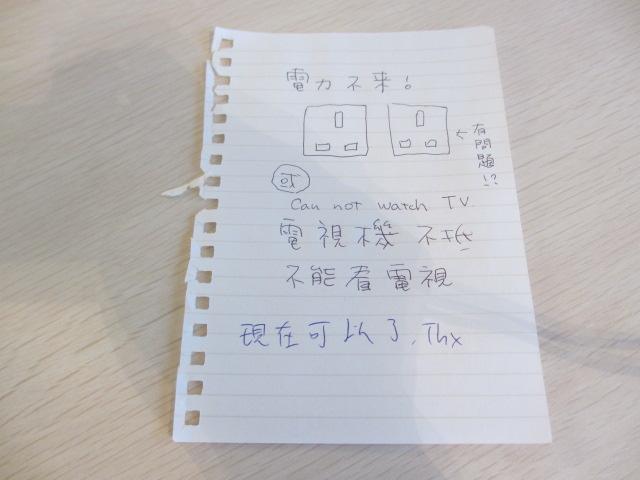 電力不来!
←有問題!?
或
Can not watch TV.
電視機不
不能看電視
現在可以了, Thx